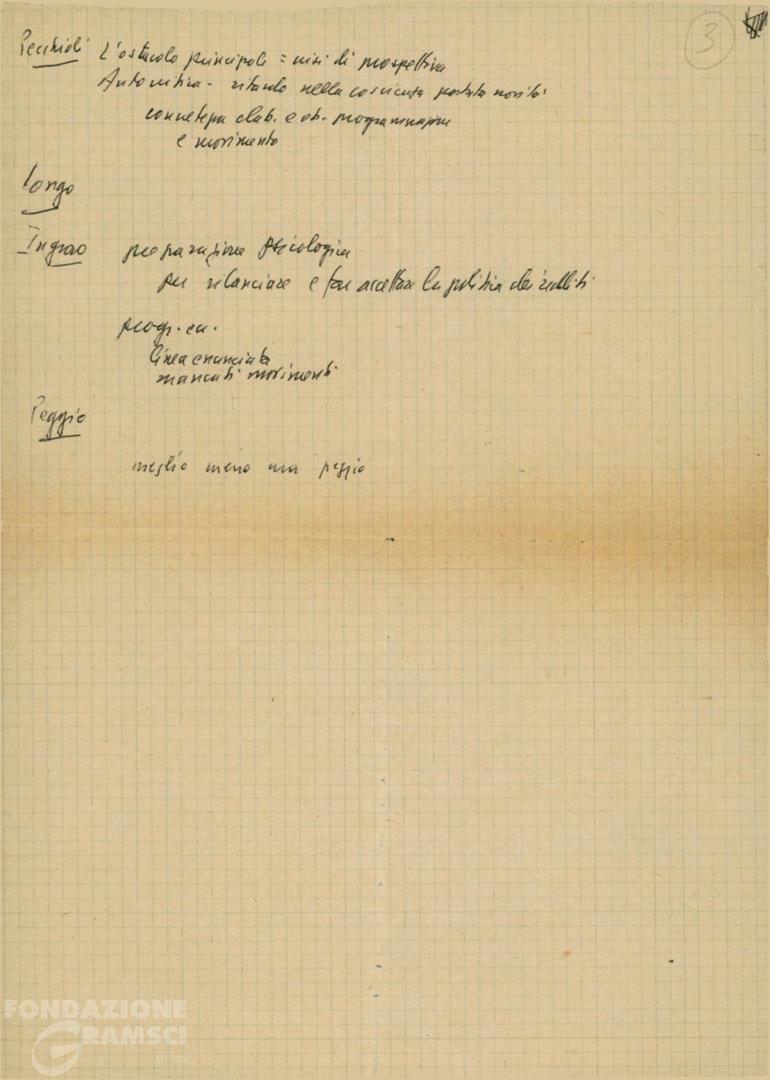 3
Pecchioli L'ostacolo principale = crisi di prospettiva
Autocritica - ritardo nella coscienza portata novità
concretezza elab. e ob. programmazione
e movimento
Longo
Ingrao preparazione psicologica
per rilanciare e far accettare la politica dei redditi
progr. ec.
linea enunciata
mancati movimenti
Peggio
meglio meno ma peggio
FONDAZIONE
GRAMSCI
onlus